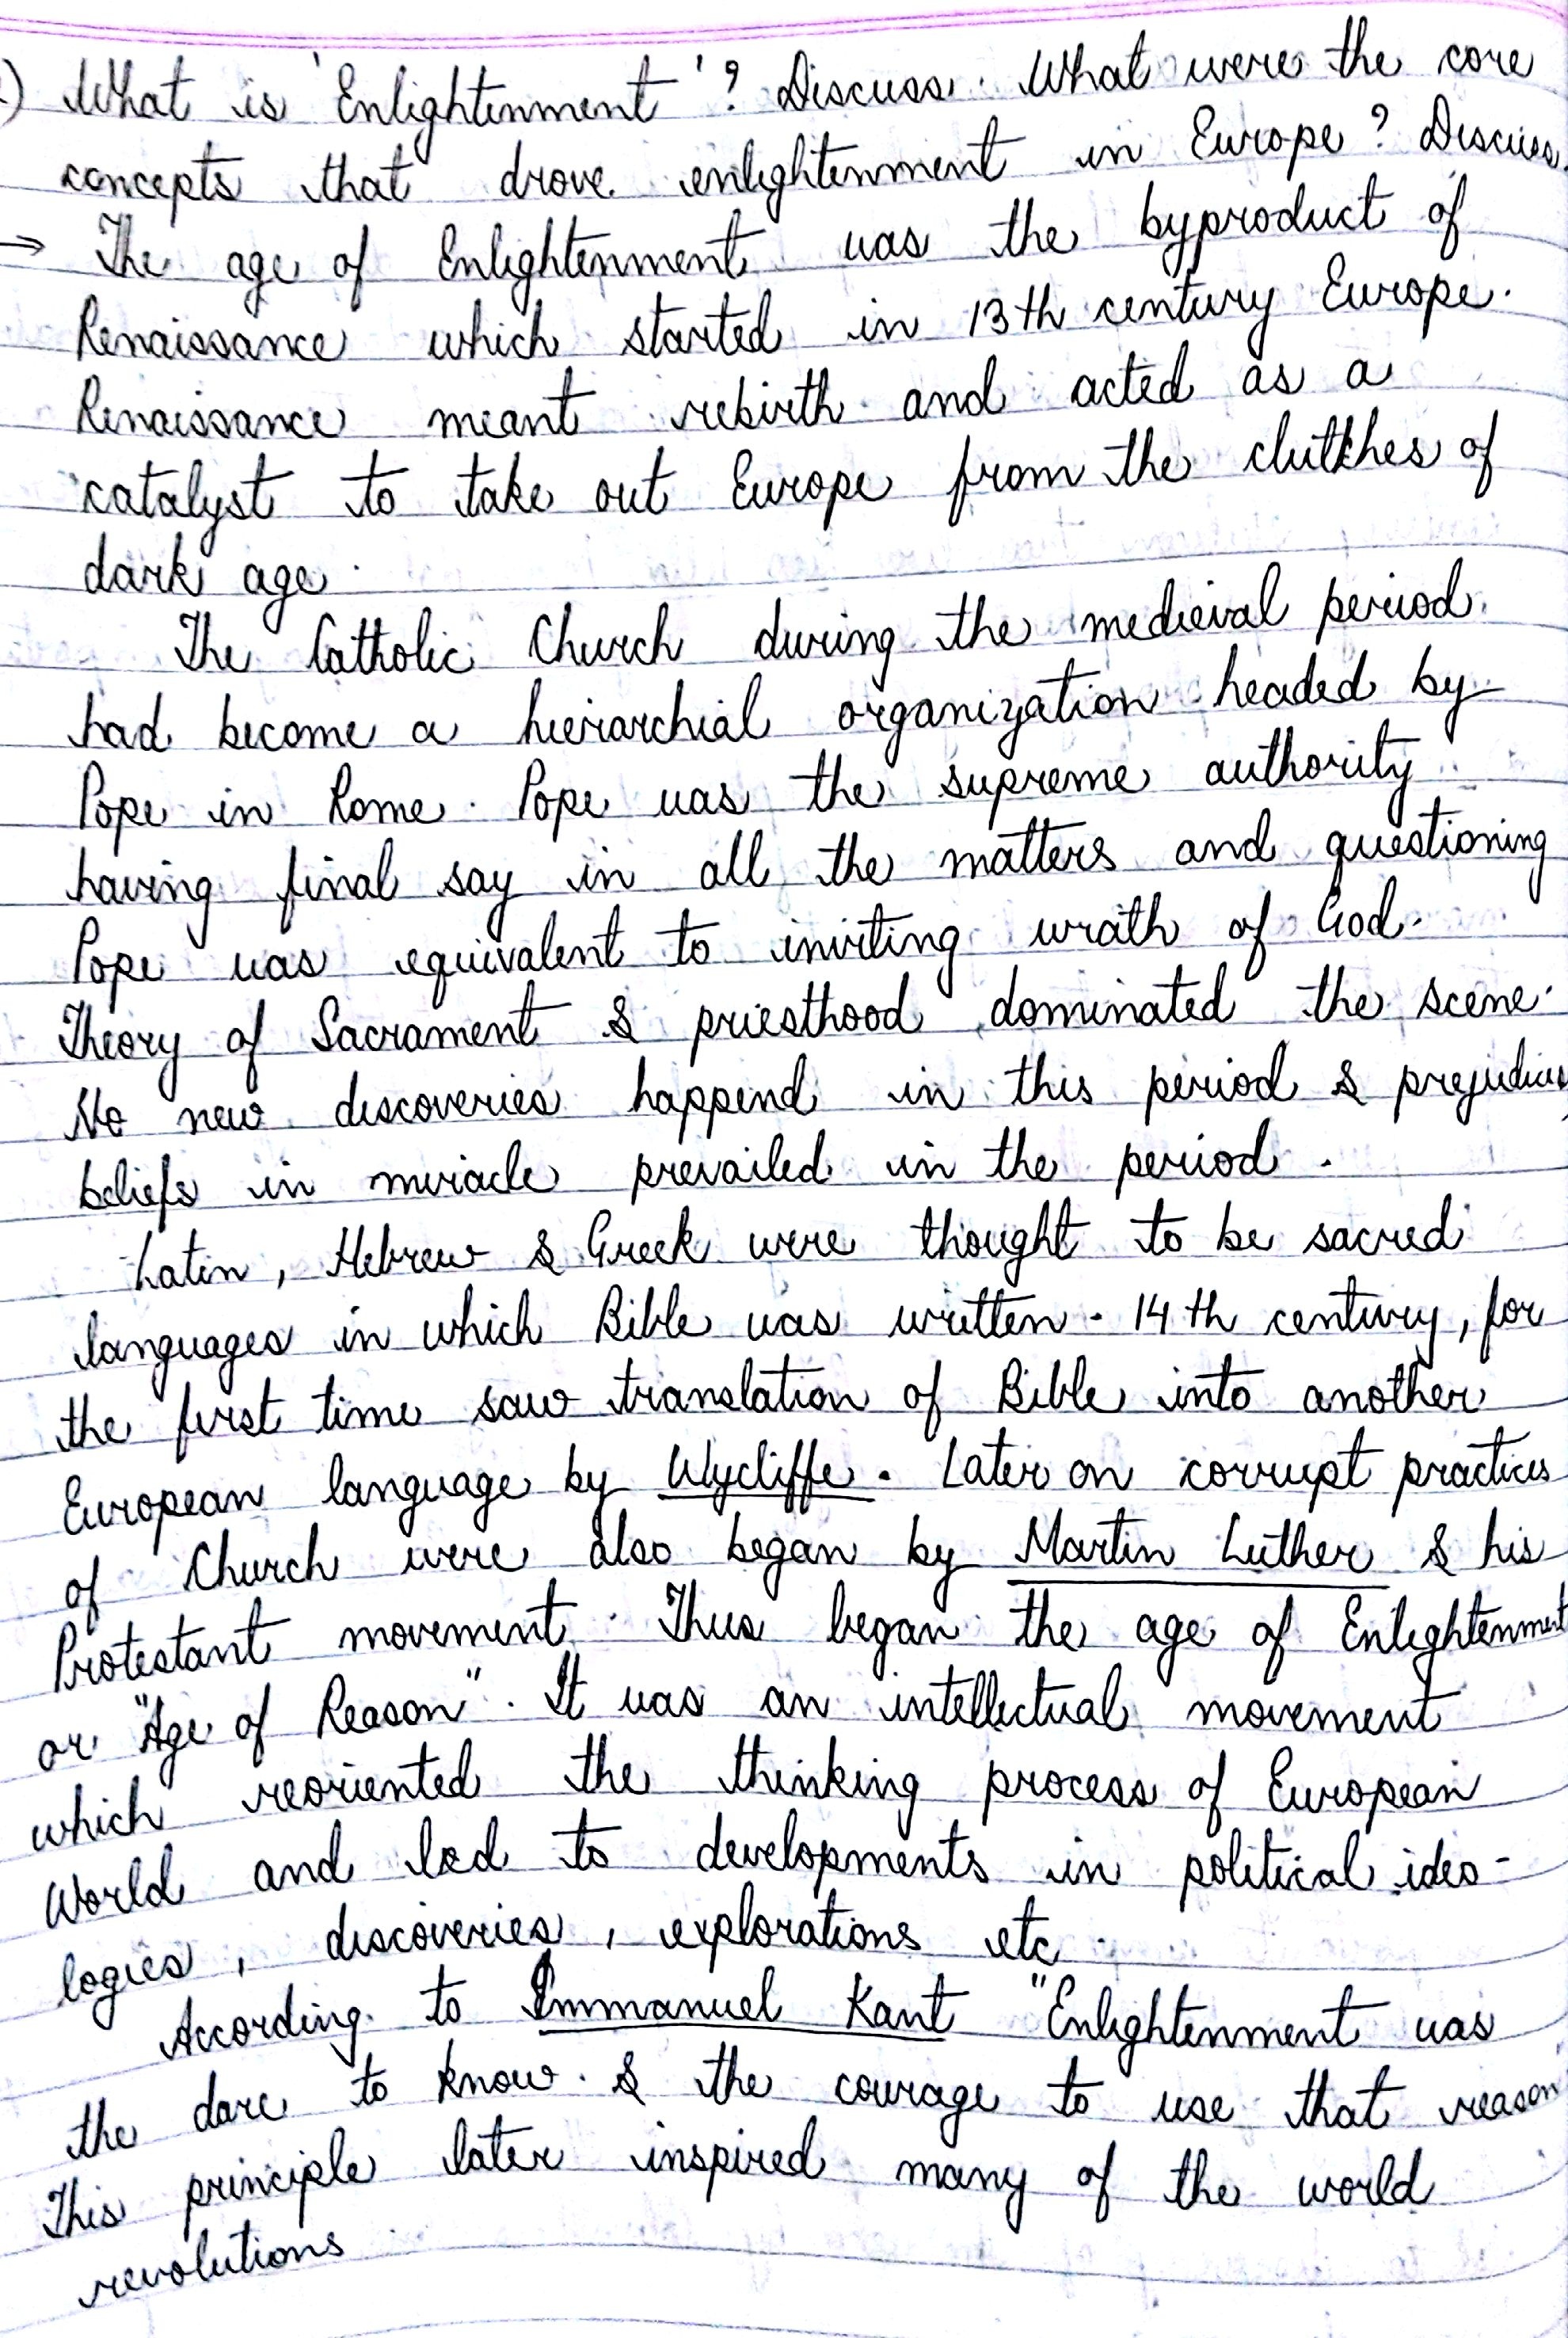 ) What is 'Enlightenment'? Discuss. What were the core
concepts that drove enlightenment in Europe? Discuss.
→ The age of Enlightenment was the byproduct of
Renaissance which started in 13th century Europe.
Renaissance meant rebirth and acted as a
catalyst to take out Europe from the clutches of
dark age.
The Catholic Church during the medieval period
had become a hierarchial organization headed by
Pope in Rome. Pope was the supreme authority
having final say in all the matters and questioning
Pope was equivalent to inviting wrath of God.
Theory of Sacrament & priesthood dominated the scene.
No new discoveries happend in this period & prejudice,
beliefs in miracle prevailed in the period.
Latin, Hebrew & Greek were thought to be sacred
languages in which Bible was written. 14th century, for
the first time saw translation of Bible into another
European language by Wycliffe. Later on corrupt practices
of Church were also began by Martin Luther & his
Protestant movement. Thus began the age of Enlightenment
or "Age of Reason". It was an intellectual movement
which reoriented the thinking process of European
World and led to developments in political ideo-
logies, discoveries, explorations etc.
According to Immanuel Kant "Enlightenment was
the dare to know & the courage to use that reason"
This principle later inspired many of the world
revolutions